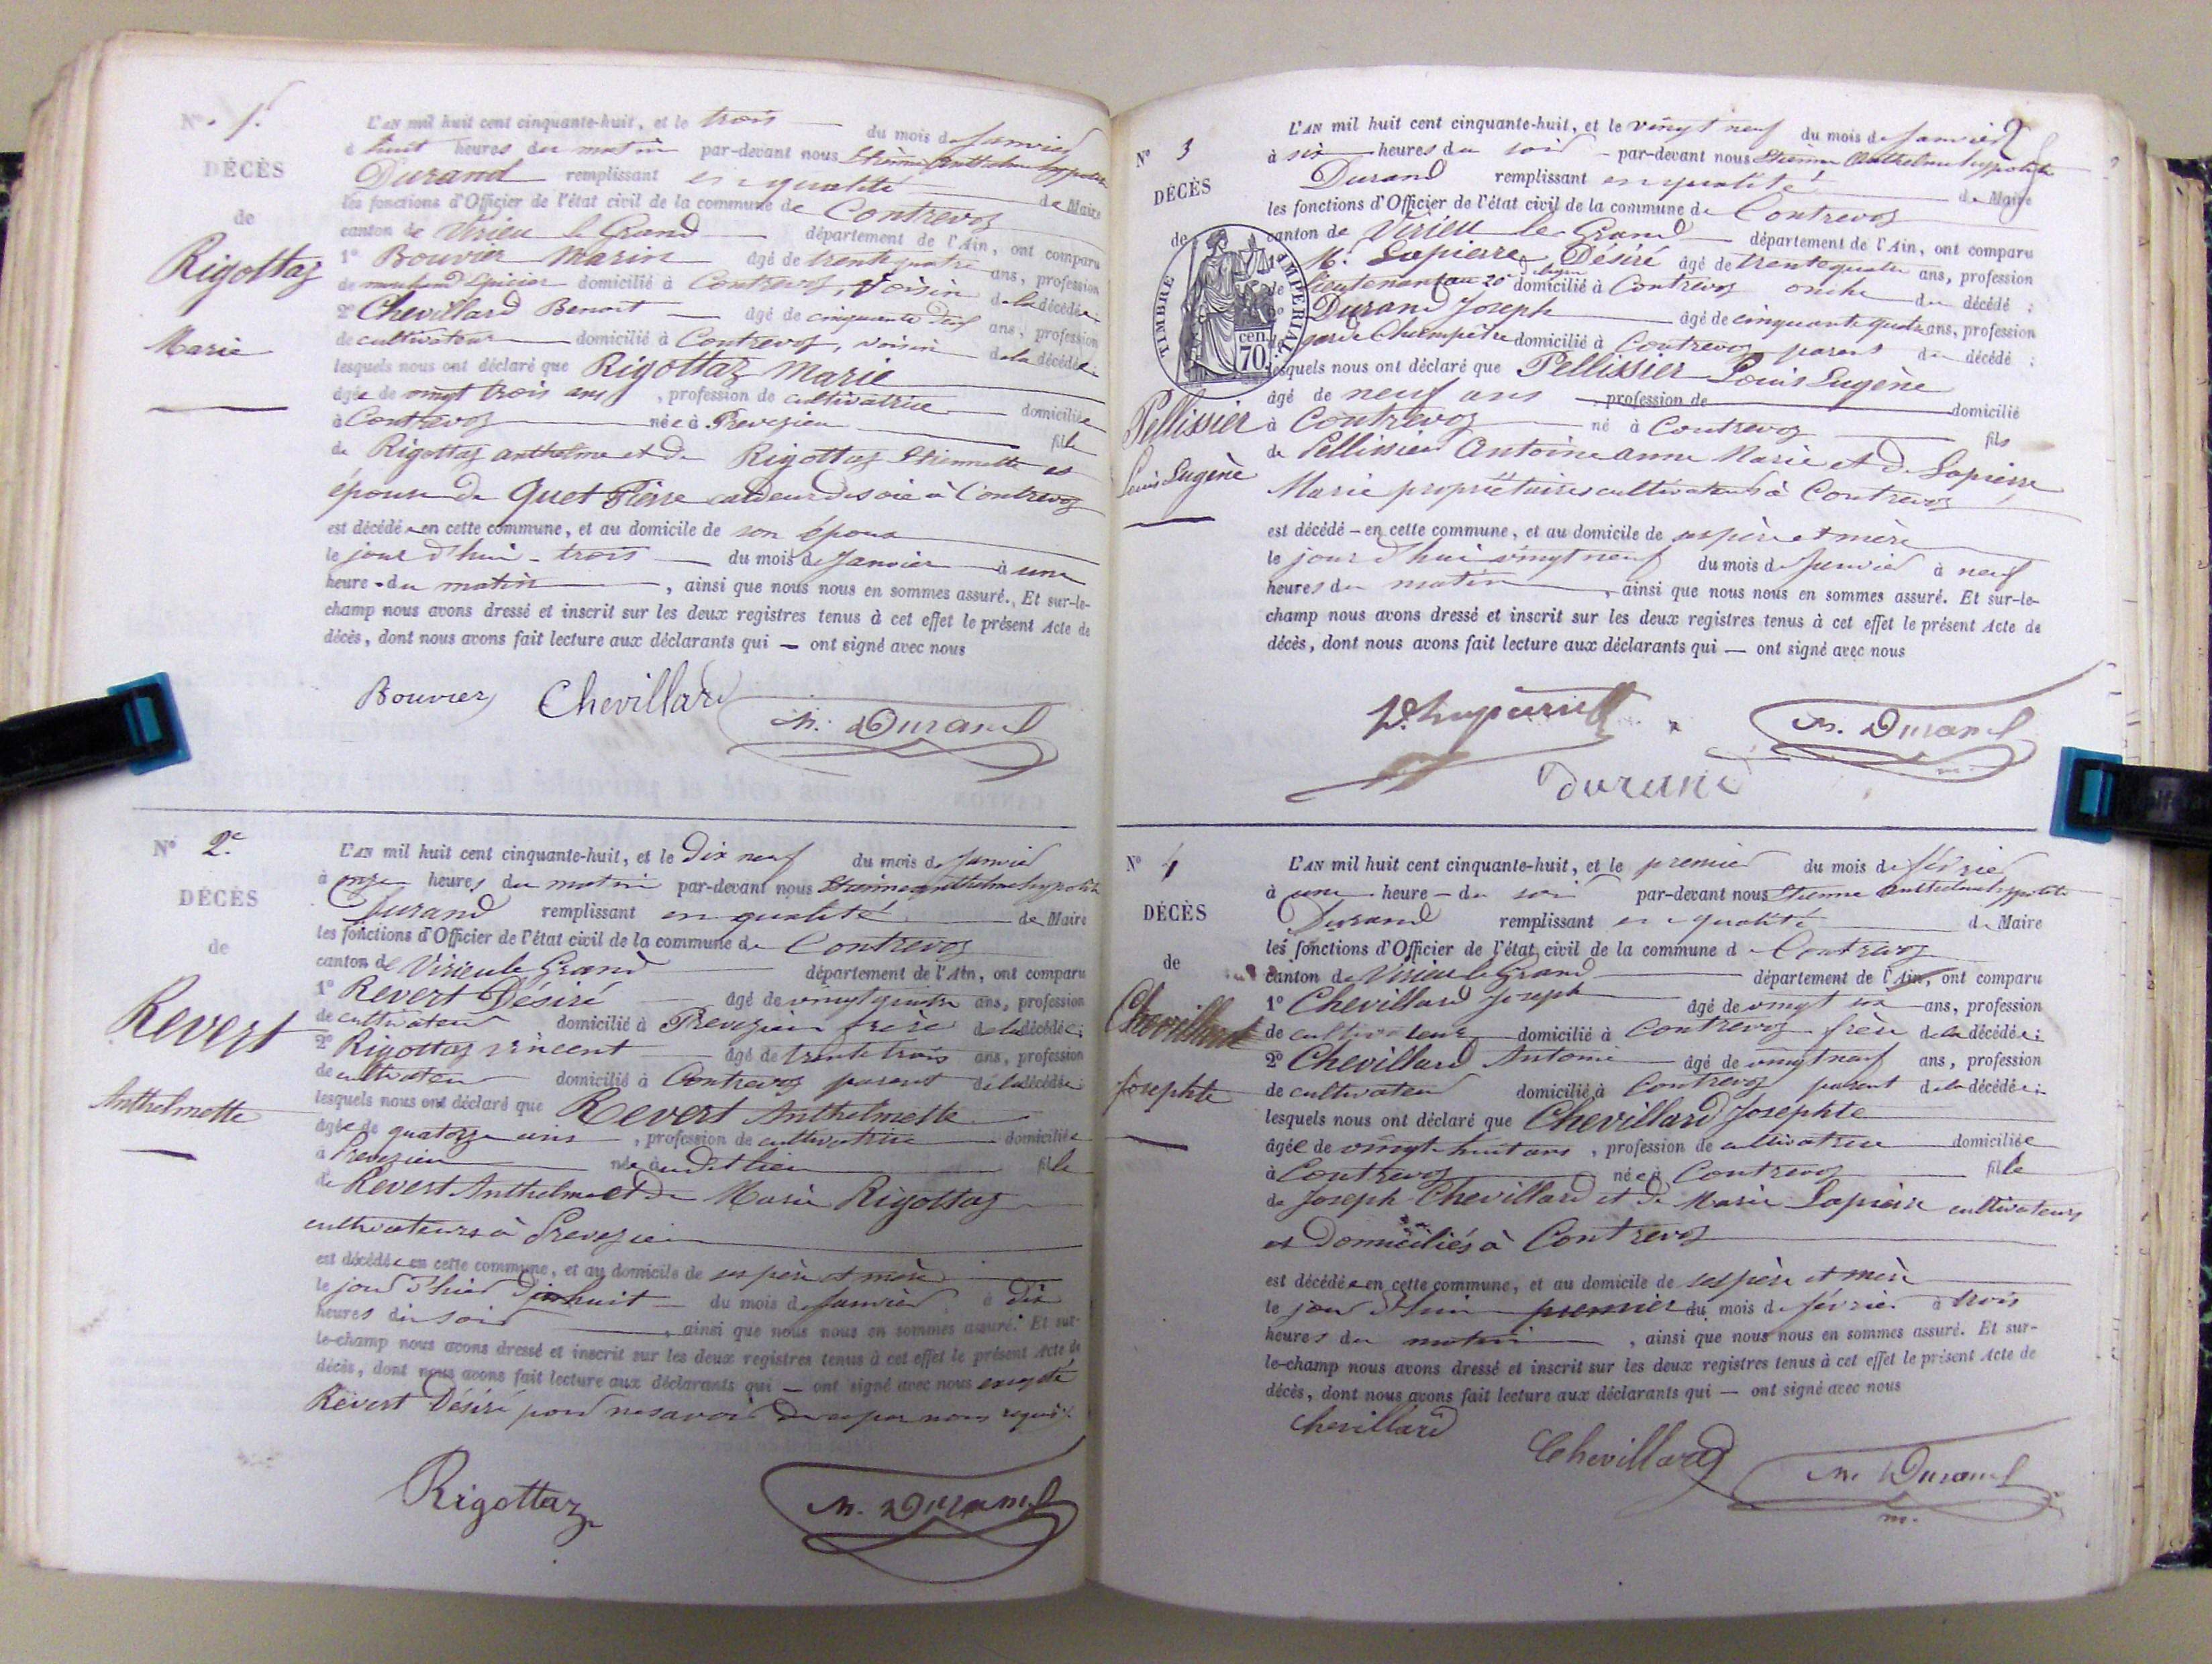 N° 1.
DÉCÈS
de
Rigottaz
Marie
L'AN mil huit cent cinquante-huit, et le trois du mois de Janvier
à huit heures du matin par-devant nous Etienne Anthelme hyppolite
Durand remplissant en qualité de Maire
les fonctions d'Officier de l'état civil de la commune de Contrevoz
canton de Virieu le Grand département de l'Ain, ont comparu
1° Bouvier Marin âgé de trente quatre ans, profession
de marchand Epicier domicilié à Contrevoz, Voisin de la décédée;
2° Chevillard Benoit âgé de cinquante ans, profession
de cultivateur domicilié à Contrevoz, voisin de la décédée;
lesquels nous ont déclaré que Rigottaz Marie
âgée de vingt trois ans, profession de cultivatrice domiciliée
à Contrevoz née à Prevezieu fille
de Rigottaz anthelme et de Rigottaz Etiennette et
épouse de Quet Pierre cardeur de soie à Contrevoz
est décédée en cette commune, et au domicile de son époux
le jour d'hui trois du mois de Janvier à une
heure du matin, ainsi que nous nous en sommes assuré. Et sur-le-
champ nous avons dressé et inscrit sur les deux registres tenus à cet effet le présent Acte de
décès, dont nous avons fait lecture aux déclarants qui — ont signé avec nous
Bouvier Chevillard m. Durand
N° 2e
DÉCÈS
de
Revert
Anthelmette
L'AN mil huit cent cinquante-huit, et le Dix neuf du mois de Janvier
à onze heures du matin par-devant nous Etienne anthelme hypolite
Durand remplissant en qualité de Maire
les fonctions d'Officier de l'état civil de la commune de Contrevoz
canton de Virieu le Grand département de l'Ain, ont comparu
1° Revert Désiré âgé de vingt quatre ans, profession
de cultivateur domicilié à Prevezieu frère de la décédée;
2° Rigottaz vincent âgé de trente trois ans, profession
de cultivateur domicilié à Contrevoz parent de la décédée;
lesquels nous ont déclaré que Revert Anthelmette
âgée de quatorze ans, profession de cultivatrice domiciliée
à Prevezieu née audit lieu fille
de Revert Anthelme et de Marie Rigottaz
cultivateurs à Prevezieu
est décédée en cette commune, et au domicile de ses père et mère
le jour d'hier dix huit du mois de Janvier à dix
heures du soir, ainsi que nous nous en sommes assuré. Et sur-
le-champ nous avons dressé et inscrit sur les deux registres tenus à cet effet le présent Acte de
décès, dont nous avons fait lecture aux déclarants qui — ont signé avec nous excepté
Revert Désiré pour ne savoir de ce par nous requis.
Rigottaz m. Durand
N° 3
DÉCÈS
de
TIMBRE IMPERIAL
70 cen.
Pellissier
Louis Eugène
L'AN mil huit cent cinquante-huit, et le vingt neuf du mois de Janvier
à six heures du soir par-devant nous Etienne Anthelme hyppolite
Durand remplissant en qualité de Maire
les fonctions d'Officier de l'état civil de la commune de Contrevoz
canton de Virieu le Grand département de l'Ain, ont comparu
Mr. Lapierre Désiré âgé de trente quatre ans, profession
de lieutenant au 20e domicilié à Contrevoz oncle du décédé;
2° Durand Joseph âgé de cinquante quatre ans, profession
garde Champêtre domicilié à Contrevoz parent du décédé;
lesquels nous ont déclaré que Pellissier Louis Eugène
âgé de neuf ans, profession de domicilié
à Contrevoz né à Contrevoz fils
de Pellissier Antoine anne Marie et de Lapierre
Marie propriétaires cultivateurs à Contrevoz
est décédé en cette commune, et au domicile de ses père et mère
le jour d'hui vingt neuf du mois de Janvier à neuf
heures du matin, ainsi que nous nous en sommes assuré. Et sur-le-
champ nous avons dressé et inscrit sur les deux registres tenus à cet effet le présent Acte de
décès, dont nous avons fait lecture aux déclarants qui — ont signé avec nous
m. Durand
Durand
N° 4
DÉCÈS
de
Chevillard
Josephte
L'AN mil huit cent cinquante-huit, et le premier du mois de février
à une heure du soir par-devant nous Etienne Anthelme hyppolite
Durand remplissant en qualité de Maire
les fonctions d'Officier de l'état civil de la commune d Contrevoz
canton de Virieu le Grand département de l'Ain, ont comparu
1° Chevillard Joseph âgé de vingt six ans, profession
de cultivateur domicilié à Contrevoz frère de la décédée;
2° Chevillard Antoine âgé de vingt neuf ans, profession
de cultivateur domicilié à Contrevoz parent de la décédée;
lesquels nous ont déclaré que Chevillard Josephte
âgée de vingt huit ans, profession de cultivatrice domiciliée
à Contrevoz née à Contrevoz fille
de Joseph Chevillard et de Marie Lapierre cultivateurs
et domiciliés à Contrevoz
est décédée en cette commune, et au domicile de ses père et mère
le jour d'hui premier du mois de février à trois
heures du matin, ainsi que nous nous en sommes assuré. Et sur-
le-champ nous avons dressé et inscrit sur les deux registres tenus à cet effet le présent Acte de
décès, dont nous avons fait lecture aux déclarants qui — ont signé avec nous
chevillard
Chevillard m. Durand